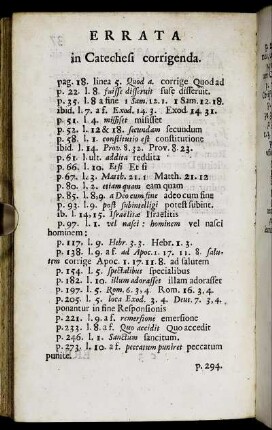 ERRATA
in Catechesi corrigenda.
pag. 18. linea 5. Quod a. corrige Quod ad
p. 22. l. 8. fuisse disseruit fuse disseruit.
p. 35. l. 8 a fine 1 Sam. 12. 1. 1 Sam. 12. 18.
ibid. l. 7. a f. Exod. 14. 3. Exod. 14. 31.
p. 51. l. 4. misiset misisset
p. 52. l. 12 & 18. secundam secundum
p. 58. l. 1. constitutio est constitutione
ibid. l. 14. Prov. 8. 32. Prov. 8. 23.
p. 61. l. ult. addita reddita
p. 66. l. 10. Etsi Et si
p. 67. l. 3. Match. 21. 1 Match. 21. 12
p. 80. l. 2. etiam quam eam quam
p. 85. l. 8. 9. a Deo eum sine adeo cum fine
p. 93. l. 9. post subintelligi potest subint.
ib. l. 14, 15. Israelitæ Israelitis
p. 97. l. 1. vel nasci: hominem vel nasci
hominem:
p. 117. l. 9. Hebr. 3. 3. Hebr. 1. 3.
p. 138. l. 9. a f. ad Apoc. 1. 17. 11. 8. salu-
tem corrige Apoc. 1. 17. 11. 8. ad salutem
p. 154. l. 5. spectalibus specialibus
p. 182. l. 10. illum adorasses illam adorasset
p. 197. l. 5. Rom. 6. 3. 4. Rom. 16. 3. 4.
p. 205. l. 5. loca Exod. 3. 4. Deut. 7. 3. 4.
ponantur in fine Responsionis
p. 221. l. 9. a f. remersione emersione
p. 233. l. 8. a f. Quo accidit Quo accedit
p. 246. l. 1. Sanctum sanctum.
p. 273. l. 10. a f. peccatum puniret peccatum
punite.
p. 294.